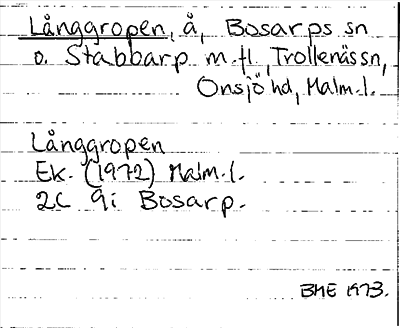 Långgropen, å, Bosarps sn
o. Stabbarp m.fl., Trollenäs sn,
Onsjö hd, Malm.l.
Långgropen
Ek. (1972) Malm.l.
2C 9i Bosarp.
BHE 1973.